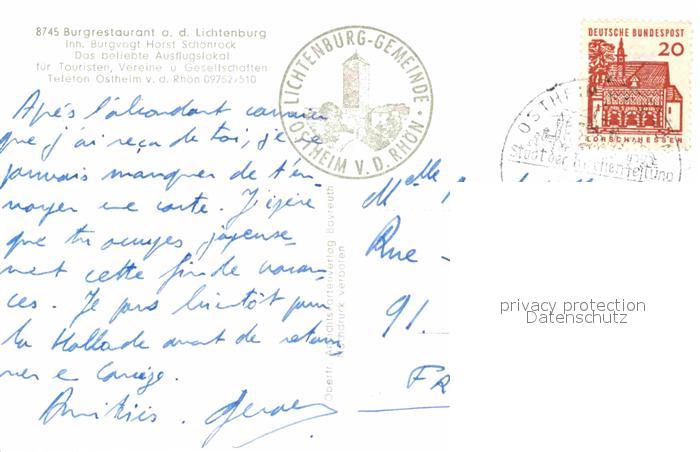 8745 Burgrestaurant a. d. Lichtenburg
Inh. Burgvogt Horst Schönrock
Das beliebte Ausflugslokal
für Touristen, Vereine u Gesellschaften
Telefon Ostheim v. d. Rhön 09752/510
LICHTENBURG-GEMEINDE
OSTHEIM V. D. RHÖN
DEUTSCHE BUNDESPOST
20
LORSCH/HESSEN
OSTHEIM
Stadt der Kirchenfestung
Après l'abondant courrier
que j'ai reçu de toi, je ne
pouvais manquer de t'en
voyer une carte. J'espère
que tu occupes joyeuse
ment cette fin de vacan
ces. Je pars bientôt pour
la Hollade avant de retour
ner en Corrèze.
Amitiés.
Melle
Rue
91.
FR
Oberfr. Ansichtskartenverlag Bayreuth
Nachdruck verboten
privacy protection
Datenschutz